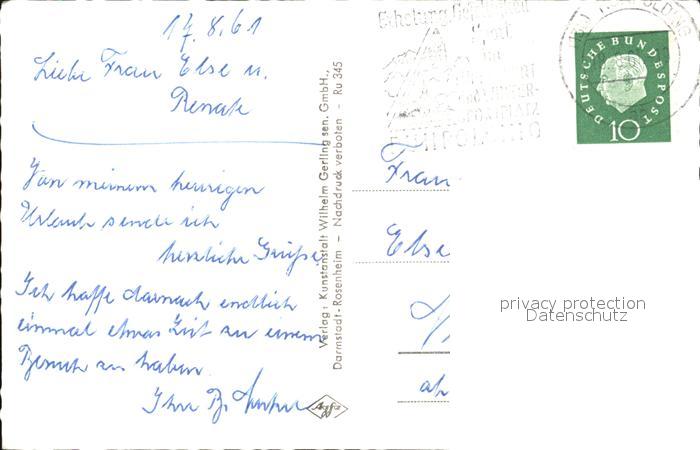 17.8.61
Liebe Frau Else u.
Renate
Von meinem heurigen
Urlaub sende ich
herzliche Grüße.
Ich hoffe darnach endlich
einmal etwas Zeit zu einem
Besuch zu haben.
Ihre B.
Verlag: Kunstanstalt Wilhelm Gerling sen. GmbH.,
Darmstadt-Rosenheim – Nachdruck verboten – Ru 345
Agfa
Erholung
RUHPOLDING
DEUTSCHE BUNDESPOST
10
Frau
Else
privacy protection
Datenschutz